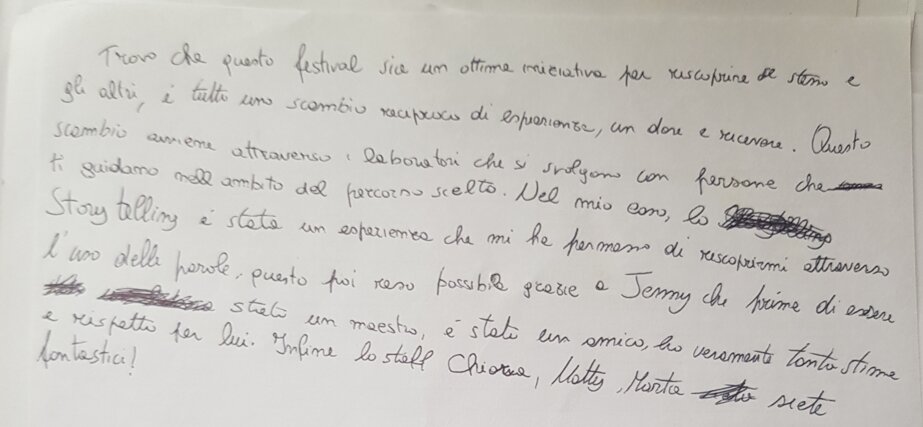 Trovo che questo festival sia un ottima iniziativa per riscoprire se stesso e
gli altri, è tutto uno scambio reciproco di esperienze, un dare e ricevere. Questo
scambio avviene attraverso i laboratori che si svolgono con persone che
ti guidano nell ambito del percorso scelto. Nel mio caso, lo
Story telling è stata un esperienza che mi ha permesso di riscoprirmi attraverso
l'uso delle parole, questo poi reso possibile grazie a Jenny che prima di essere
stato un maestro, è stato un amico, ho veramente tanta stima
e rispetto per lui. Infine lo staff Chiara, Matty, Marta siete
fantastici!